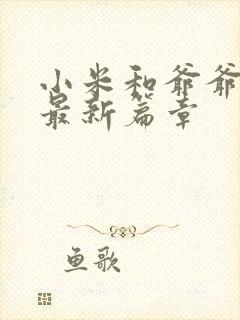 小米和爷爷
最新篇章
鱼歌